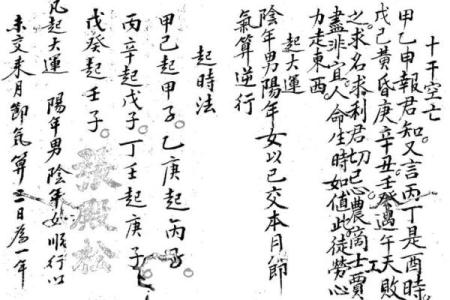 十干空亡
甲乙申報君知又言丙丁是酉時
戊己黃昏庚辛丑壬癸過午天敗
之求名求利君切忌農商士賈工
盡非宜人命生時如值此徒勞心
力走東西
起大運
陰年男陽年女以已交本月節
氣算逆行
起時法
甲己起甲子乙庚起丙子
丙辛起戊子丁壬起庚子
戊癸起壬子
凡起大運 陽年男陰年女順行以
未交來月節氣算三日為一年